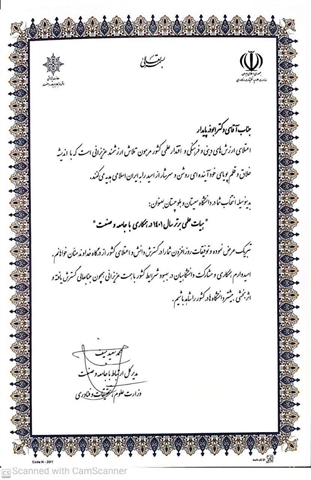 بسمه تعالی
جناب آقای دکتر ابوذر پایدار
اعتلای ارزش‌های دینی و فرهنگی و اقتدار علمی کشور مرهون تلاش ارزشمند عزیزانی است که با اندیشه
خلاق و قلم پویای خود آینده‌ای روشن و سرشار از امید را به ایران اسلامی هدیه می‌کنند.
بدینوسیله انتخاب شما در دانشگاه سیستان و بلوچستان بعنوان:
"هیات علمی برتر سال ۱۴۰۱ در همکاری با جامعه و صنعت"
تبریک عرض نموده و توفیقات روزافزون شما در گسترش دانش و اعتلای کشور از درگاه خداوند منان خواهانم.
امیدوارم همکاری و مشارکت دانشگاهیان در بهبود شرایط کشور با همت عزیزانی همچون جنابعالی گسترش یافته و
اثربخشی بیشتر دانشگاه‌ها در کشور را شاهد باشیم.
محمد سعید سیف
مدیر کل ارتباط با جامعه و صنعت
وزارت علوم، تحقیقات و فناوری
Code H - 201
Scanned with CamScanner